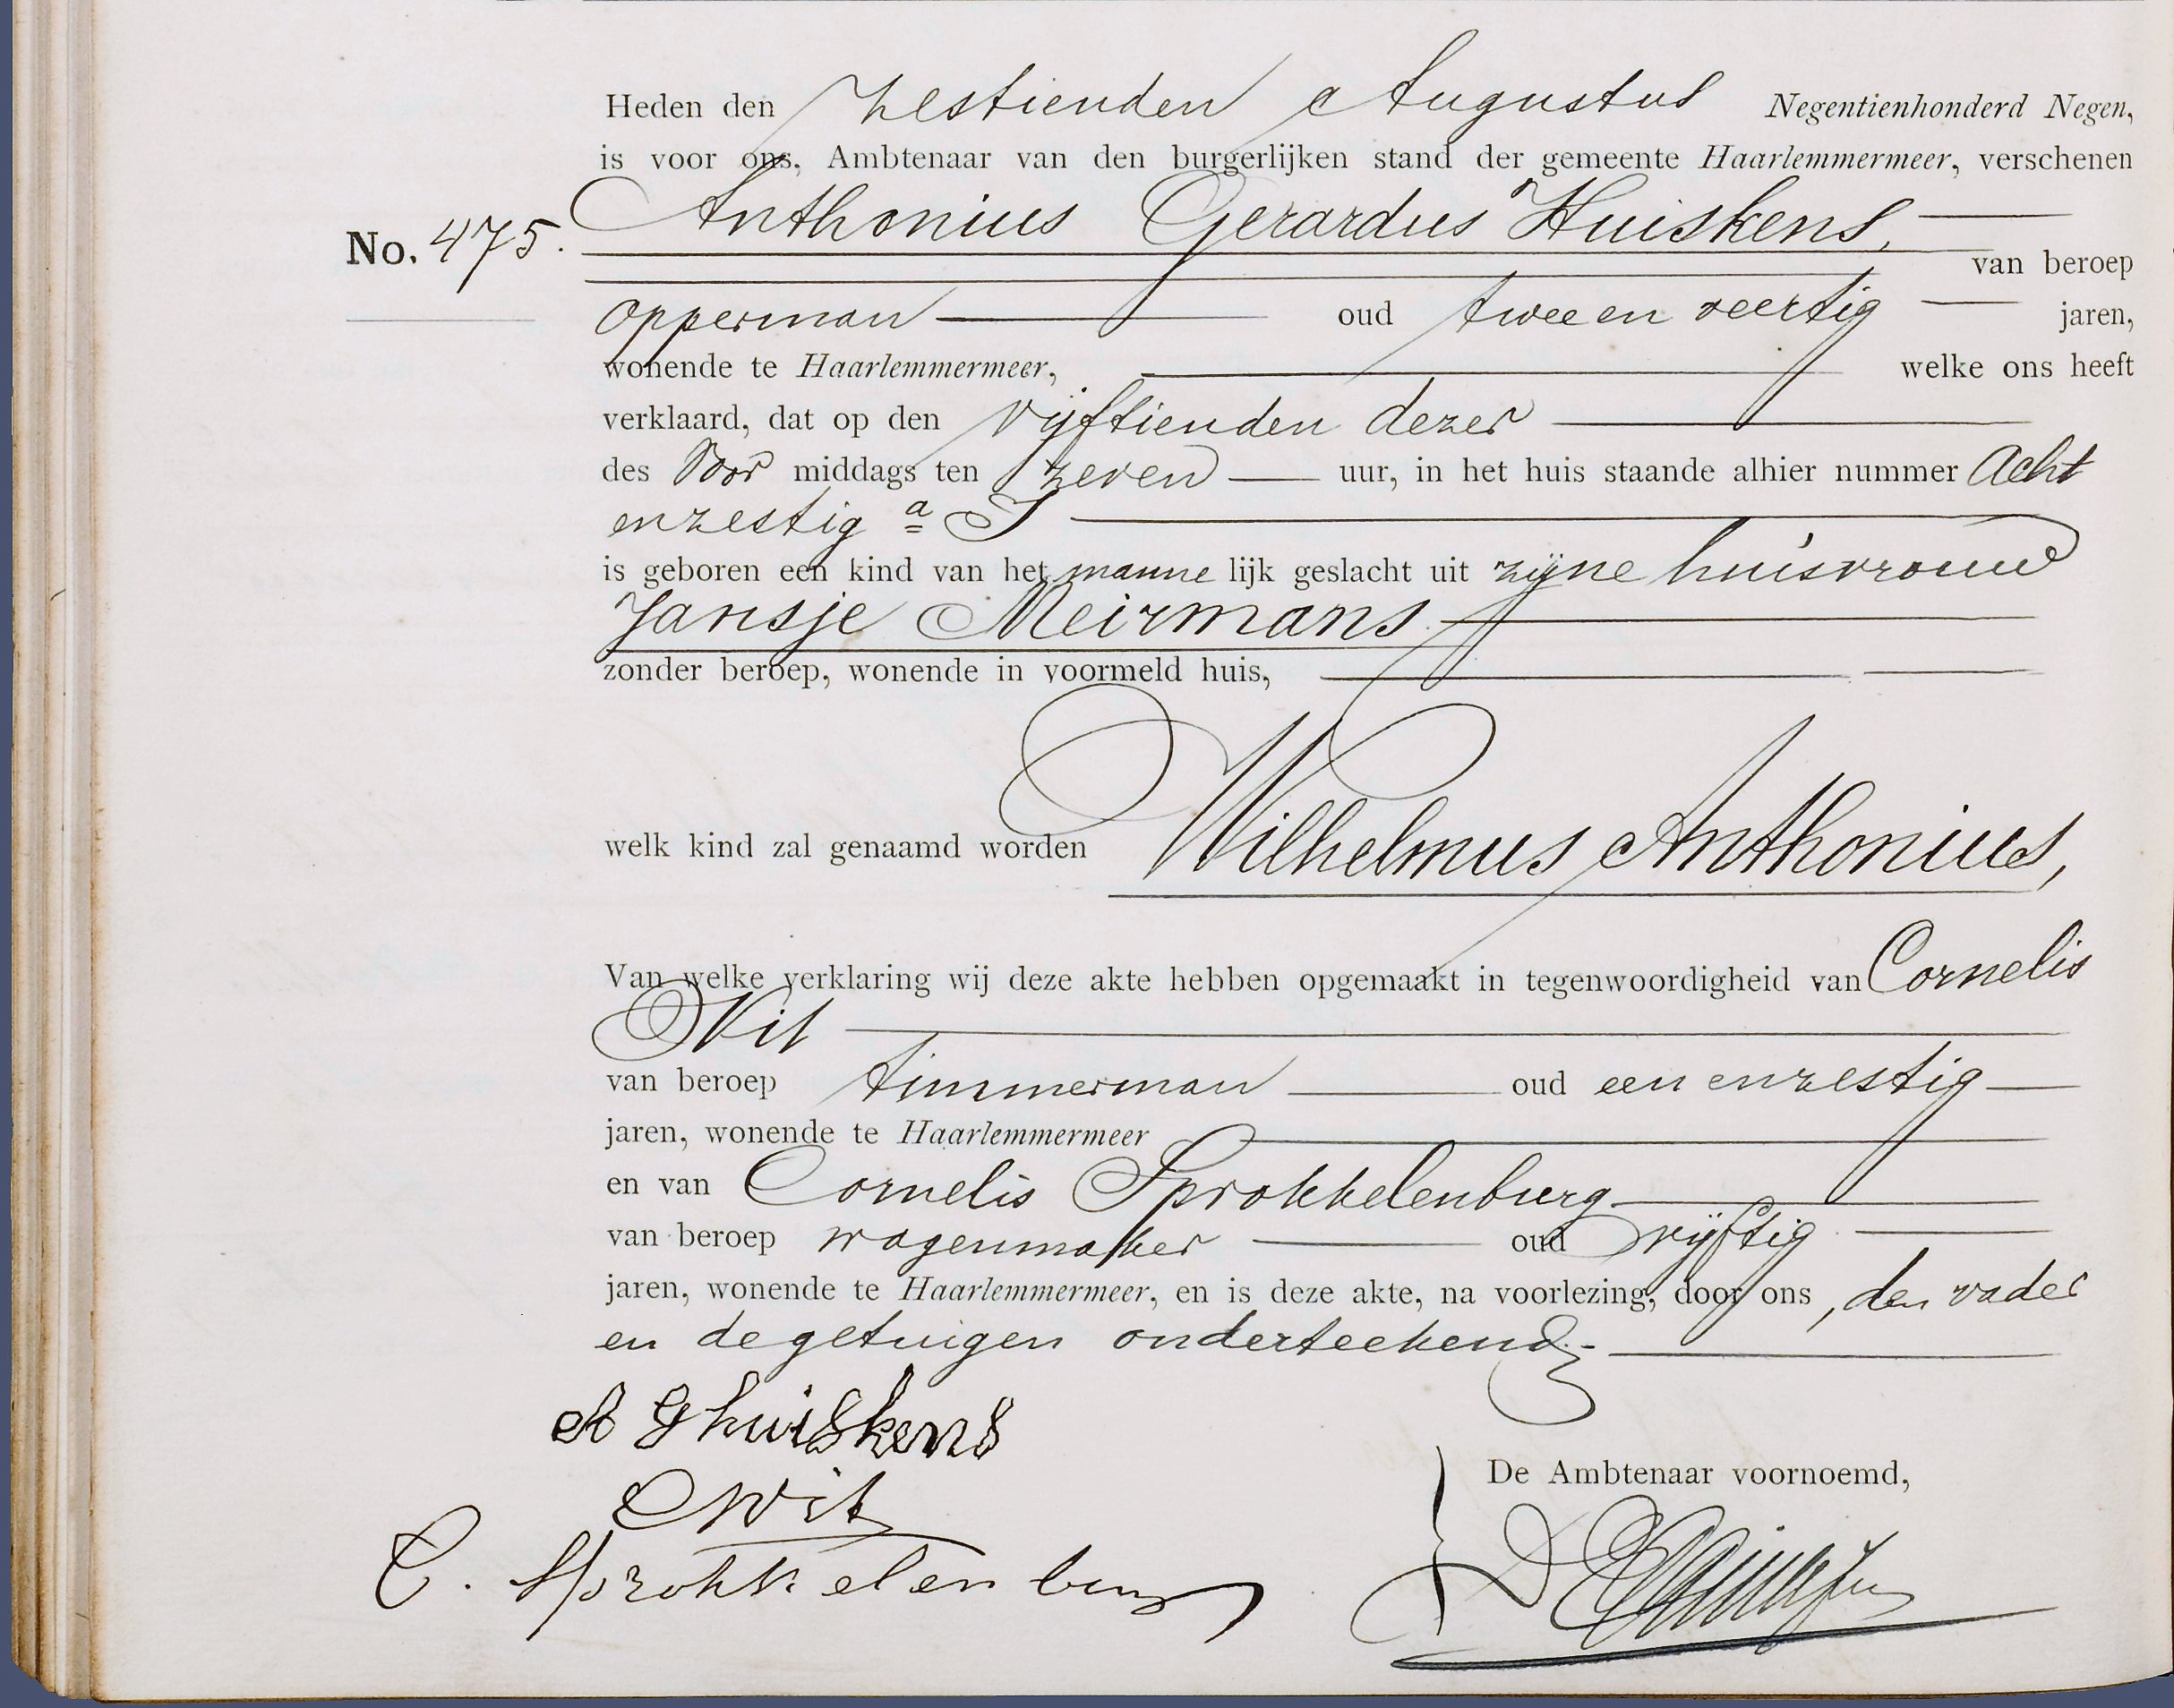 Heden den zestienden Augustus Negentienhonderd Negen,
is voor ons, Ambtenaar van den burgerlijken stand der gemeente Haarlemmermeer, verschenen
No. 475. Anthonius Gerardus Huiskens,
van beroep
opperman oud twee en veertig jaren,
wonende te Haarlemmermeer, welke ons heeft
verklaard, dat op den vijftienden dezer
des Voor middags ten zeven uur, in het huis staande alhier nummer Acht
en zestig a S
is geboren een kind van het manne lijk geslacht uit zijne huisvrouw
Jansje Meirmans
zonder beroep, wonende in voormeld huis,
welk kind zal genaamd worden Wilhelmus Anthonius,
Van welke verklaring wij deze akte hebben opgemaakt in tegenwoordigheid van Cornelis
Wit
van beroep timmerman oud een en zestig
jaren, wonende te Haarlemmermeer
en van Cornelis Sprokkelenburg
van beroep wagenmaker oud vijftig
jaren, wonende te Haarlemmermeer, en is deze akte, na voorlezing, door ons, den vader
en de getuigen onderteekend.
A G huiskens
C Wit
C. Sprokkelenburg
De Ambtenaar voornoemd,